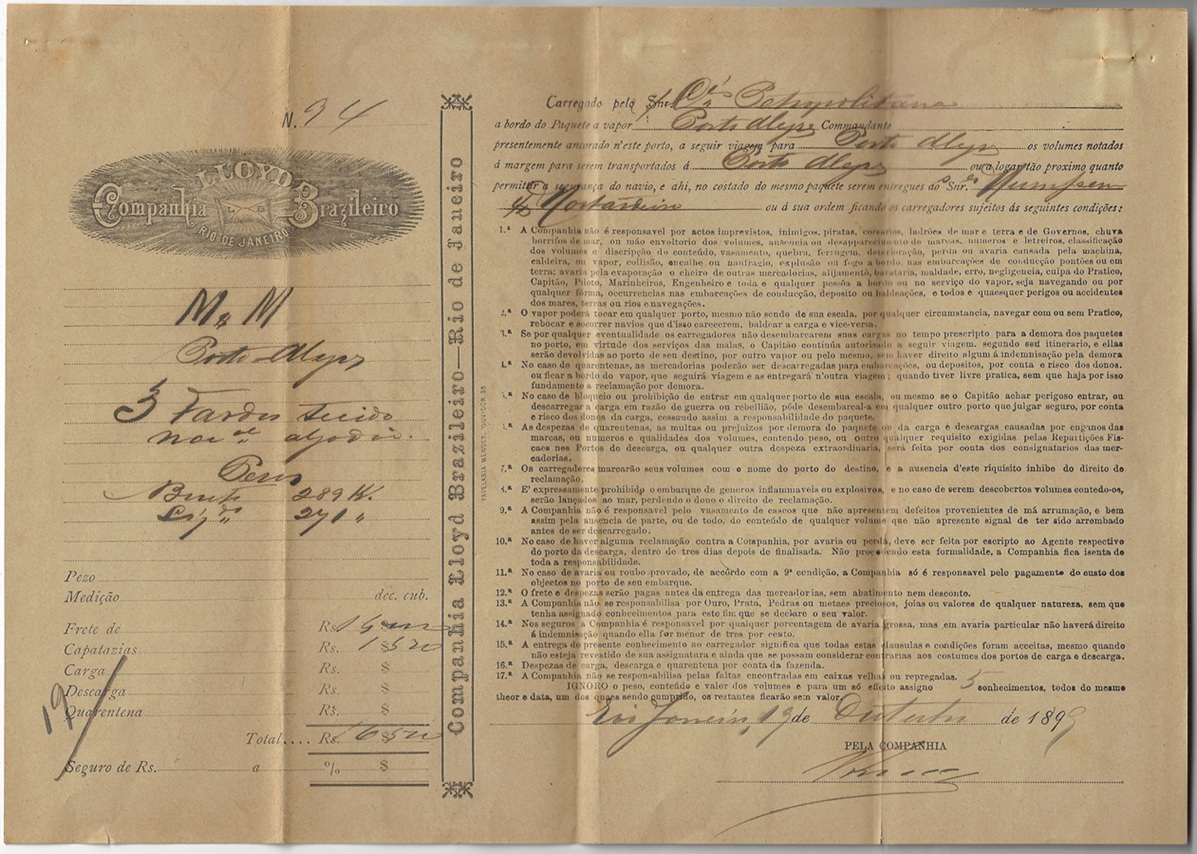 N. 34
LLOYD
Companhia Brazileiro
RIO DE JANEIRO
M & M
Porto Alegre
3 Fardos tecido
nac.al algodão.
Peso
Bruto 289 K.
Liq.do 271 "
Pezo
Medição dec. cub.
Frete de Rs. 15000
Capatazias Rs. 1$520
Carga Rs. $
Descarga Rs. $
Quarentena Rs. $
19
Total.... Rs. 16$520
Seguro de Rs. a % $
Companhia Lloyd Brazileiro—Rio de Janeiro
PAPELARIA MENDES, OUVIDOR
Carregado pelo Snr. Cia Petropolitana
a bordo do Paquete a vapor Porto Alegre Commandante
presentemente ancorado n'este porto, a seguir viagem para Porto Alegre os volumes notados
á margem para serem transportados á Porto Alegre ou a logar tão proximo quanto
permittir a segurança do navio, e ahi, no costado do mesmo paquete serem entregues ao Snr.
Mostardeiro ou á sua ordem ficando os carregadores sujeitos ás seguintes condições:
1.ª A Companhia não é responsavel por actos imprevistos, inimigos, piratas, corsarios, ladrões de mar e terra e de Governos, chuva
borrifos de mar, ou máo envoltorio dos volumes, ausencia ou desapparecimento de marcas, numeros e letreiros, classificação
dos volumes e discripção de conteúdo, vasamento, quebra, ferrugem, deterioração, perda ou avaria causada pela machina,
caldeira, ou vapor, collisão, encalhe ou naufragio, explusão ou fogo a bordo, nas embarcações de conducção pontões ou em
terra; avaria pela evaporação o cheiro de outras mercadorias, alijamento, barataria, maldade, erro, negligencia, culpa do Pratico,
Capitão, Piloto, Marinheiros, Engenheiro e toda e qualquer pessôa a bordo ou no serviço do vapor, seja navegando ou por
qualquer fórma, occurrencias nas embarcações de conducção, deposito ou baldeações, e todos e quaesquer perigos ou accidentes
dos mares, terras ou rios e navegações.
2.ª O vapor poderá tocar em qualquer porto, mesmo não sendo de sua escala, por qualquer circumstancia, navegar com ou sem Pratico,
rebocar e soccorrer navios que d'isso carecerem, baldear a carga e vice-versa.
3.ª Se por qualquer eventualidade os carregadores não desembarcarem suas cargas no tempo prescripto para a demora dos paquetes
no porto, em virtude dos serviços das malas, o Capitão continúa autorisado a seguir viagem. segundo seu itinerario, e ellas
serão devolvidas ao porto de seu destino, por outro vapor ou pelo mesmo, sem haver direito algum á indemnisação pela demora
4.ª No caso de quarentenas, as mercadorias poderão ser descarregadas para embarcações, ou depositos, por conta e risco dos donos.
ou ficar a bordo do vapor, que seguirá viagem e as entregará n'outra viagem; quando tiver livre pratica, sem que haja por isso
fundamento a reclamação por demora.
5.ª No caso de bloqueio ou prohibição de entrar em qualquer porto de sua escala, ou mesmo se o Capitão achar perigoso entrar, ou
descarregar a carga em razão de guerra ou rebellião, póde desembarcal-a em qualquer outro porto que julgar seguro, por conta
e risco dos donos da carga, cessando assim a responsabilidade do paquete.
6.ª As despezas de quarentenas, as multas ou prejuizos por demora do paquete ou da carga e descargas causadas por enganos das
marcas, ou numeros e qualidades dos volumes, contendo peso, ou outro qualquer requisito exigidas pelas Repartições Fis-
caes nos Portos de descarga, ou qualquer outra despeza extraordinaria, será feita por conta dos consignatarios das mer-
cadorias.
7.ª Os carregadores marcarão seus volumes com o nome do porto do destino, e a ausencia d'este riquisito inhibe do direito de
reclamação.
8.ª E' expressamente prohibido o embarque de generos inflammaveis ou explosivos, e no caso de serem descobertos volumes contedo-os,
serão lançados ao mar, perdendo o dono o direito de reclamação.
9.ª A Companhia não é responsavel pelo vasamento de cascos que não apresentem defeitos provenientes de má arrumação, e bem
assim pela ausencia de parte, ou de todo, do conteúdo de qualquer volume que não apresente signal de ter sido arrombado
antes de ser descarregado.
10.ª No caso de haver alguma reclamação contra a Companhia, por avaria ou perda, deve ser feita por escripto ao Agente respectivo
do porto da descarga, dentro de tres dias depois de finalisada. Não procedendo esta formalidade, a Companhia fica isenta de
toda a responsabilidade.
11.ª No caso de avaria ou roubo provado, de accôrdo com a 9ª condição, a Companhia só é responsavel pelo pagamento do custo dos
objectos no porto de seu embarque.
12.ª O frete e despezas serão pagas antes da entrega das mercadorias, sem abatimento nem desconto.
13.ª A Companhia não se responsabilisa por Ouro, Prata, Pedras ou metaes preciosos, joias ou valores de qualquer natureza, sem que
tenha assignado conhecimentos para este fim que se declare o seu valor.
14.ª Nos seguros a Companhia é responsavel por qualquer porcentagem de avaria grossa, mas em avaria particular não haverá direito
á indemnisação quando ella for menor de tres por cento.
15.ª A entrega do presente conhecimento ao carregador significa que todas estas clausulas e condições foram acceitas, mesmo quando
não esteja revestido de sua assignatura e ainda que se possam considerar contrarias aos costumes dos portos de carga e descarga.
16.ª Despezas de carga, descarga e quarentena por conta da fazenda.
17.ª A Companhia não se responsabilisa pelas faltas encontradas em caixas velhas ou repregadas.
IGNORO o peso, conteúdo e valor dos volumes e para um só effeito assigno 5 conhecimentos, todos do mesmo
theor e data, um dos quaes sendo cumprido, os restantes ficarão sem valor.
Rio Janeiro, 19 de Outubro de 1899
PELA COMPANHIA